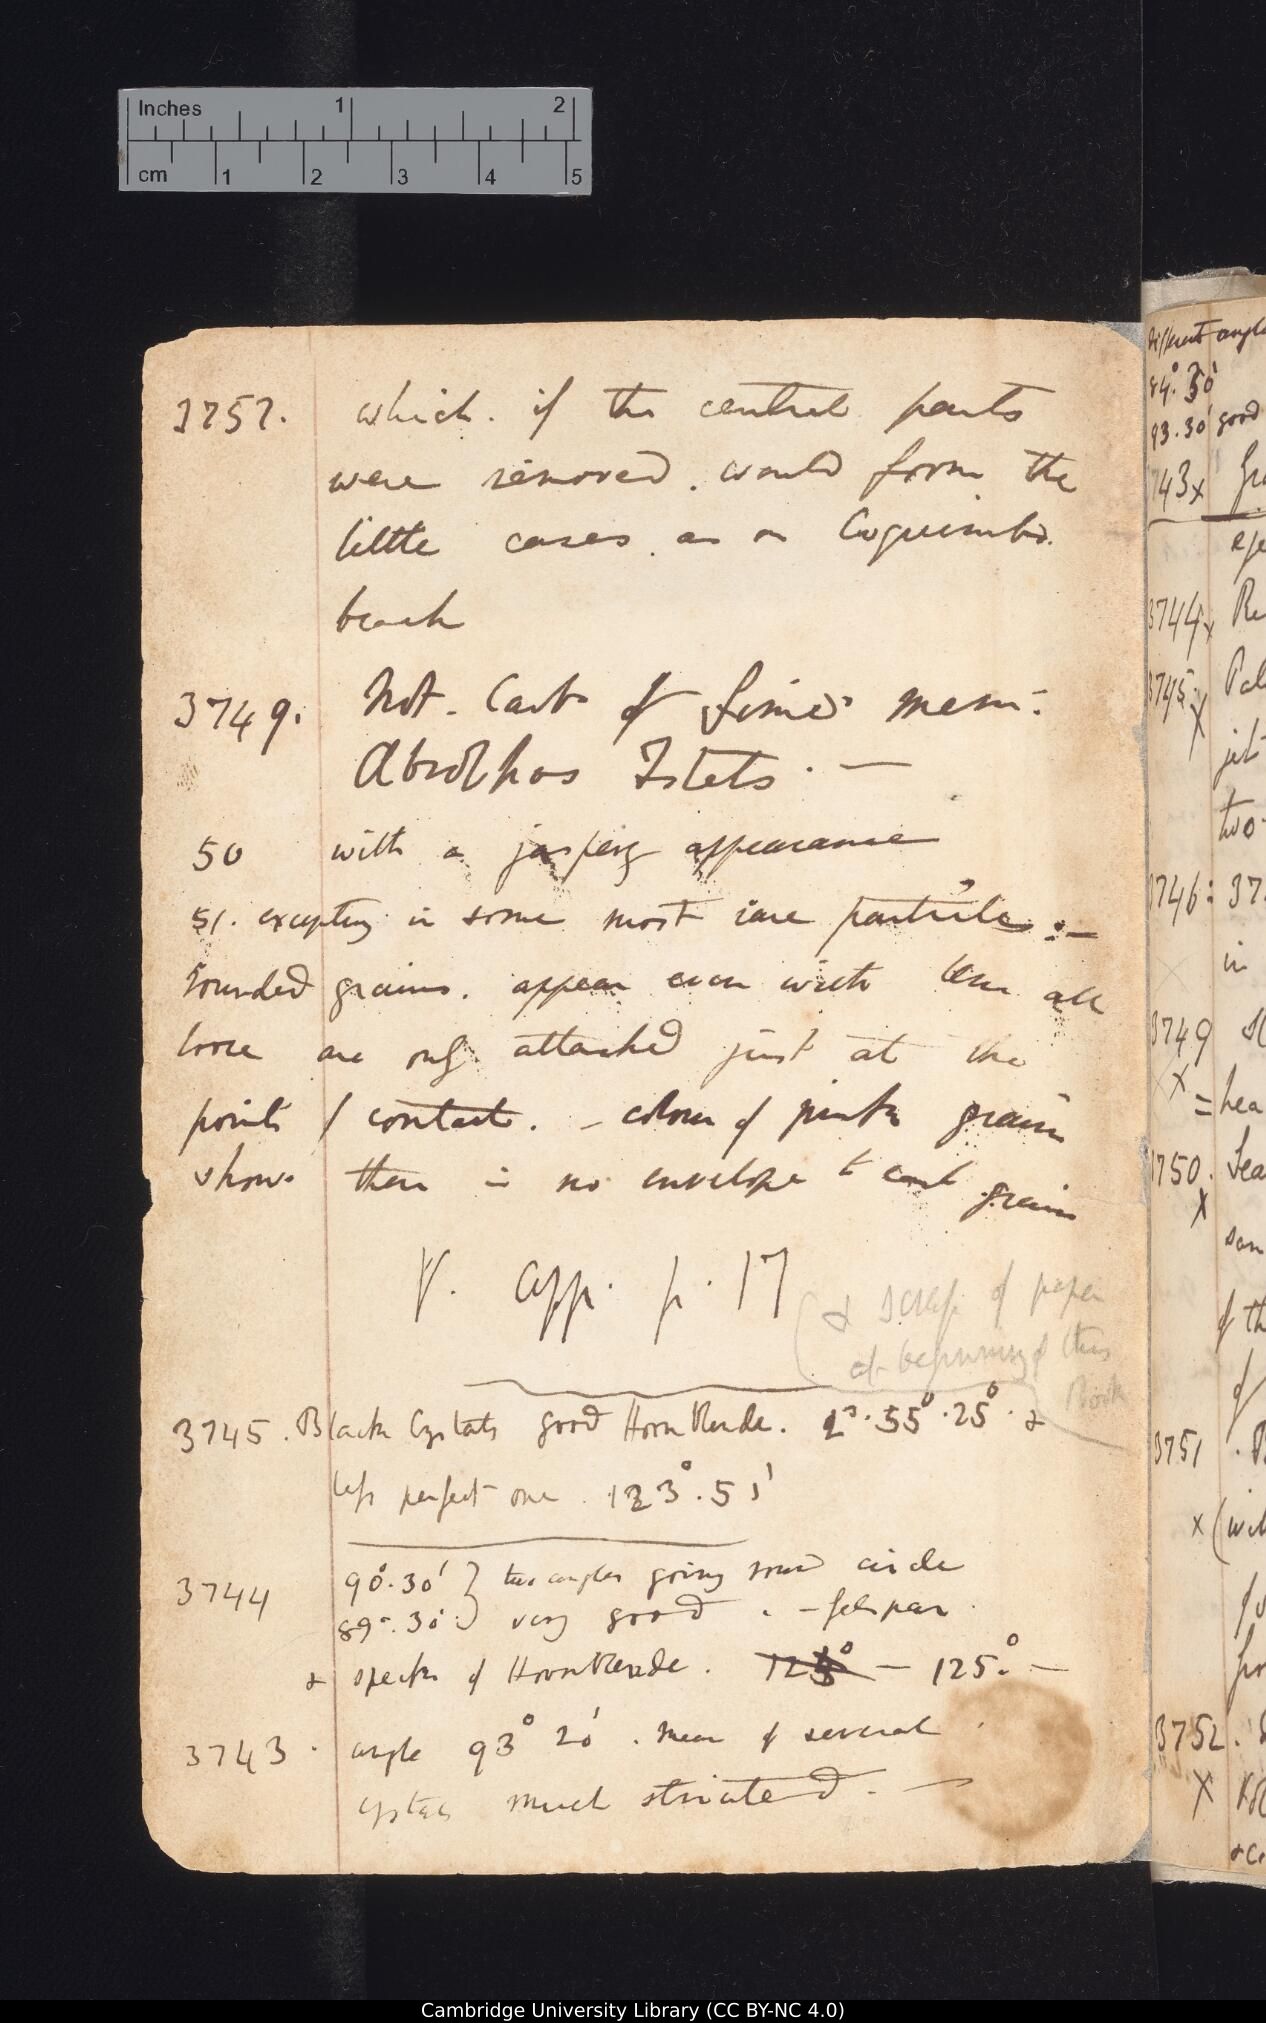 Inches 1 2
cm 1 2 3 4 5
3752. which. if the central parts
were removed. would form the
little cases. as on Coquimbo.
beach
3749. Not. Carb of Lime? mem:
Abrolhos Islets. —
50 with a jaspery appearance
51. excepting in some most rare particles:—
rounded grains. appear even with lens all
loose are only attached just at the
points of contact. — colour of pink grains
shows there is no envelope to each grain
V. App. p. 17
(& scrap of paper
at beginning of this
Book
3745. Black Crystals good Hornblende. 55°.25°. &
less perfect one. 123°.51'
3744 90°.30' } two angles going round circle
89°.30' } very good . — felspar.
& specks of Hornblende. — 125°. —
3743. angle 93° 20'. mean of several
crystals much striated. —
different angle
84°.50'
93.30' good
743x
3744x
3745x
jet
two
3746: 37
in
3749
x
= hea
1750.
x
som
of th
of
3751
x (wil
3752.
x
Cambridge University Library (CC BY-NC 4.0)